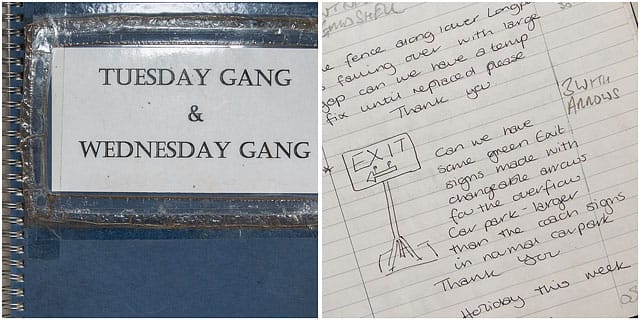 TUESDAY GANG
&
WEDNESDAY GANG
fence along lower
falling over with large
gap can we have a temp
fix until replaced please
Thank you
3 WITH
ARROWS
EXIT
Can we have
some green Exit
signs made with
changeable arrows
for the overflow
Car park - larger
than the coach signs
in normal carpark
Thank you
Holiday this week